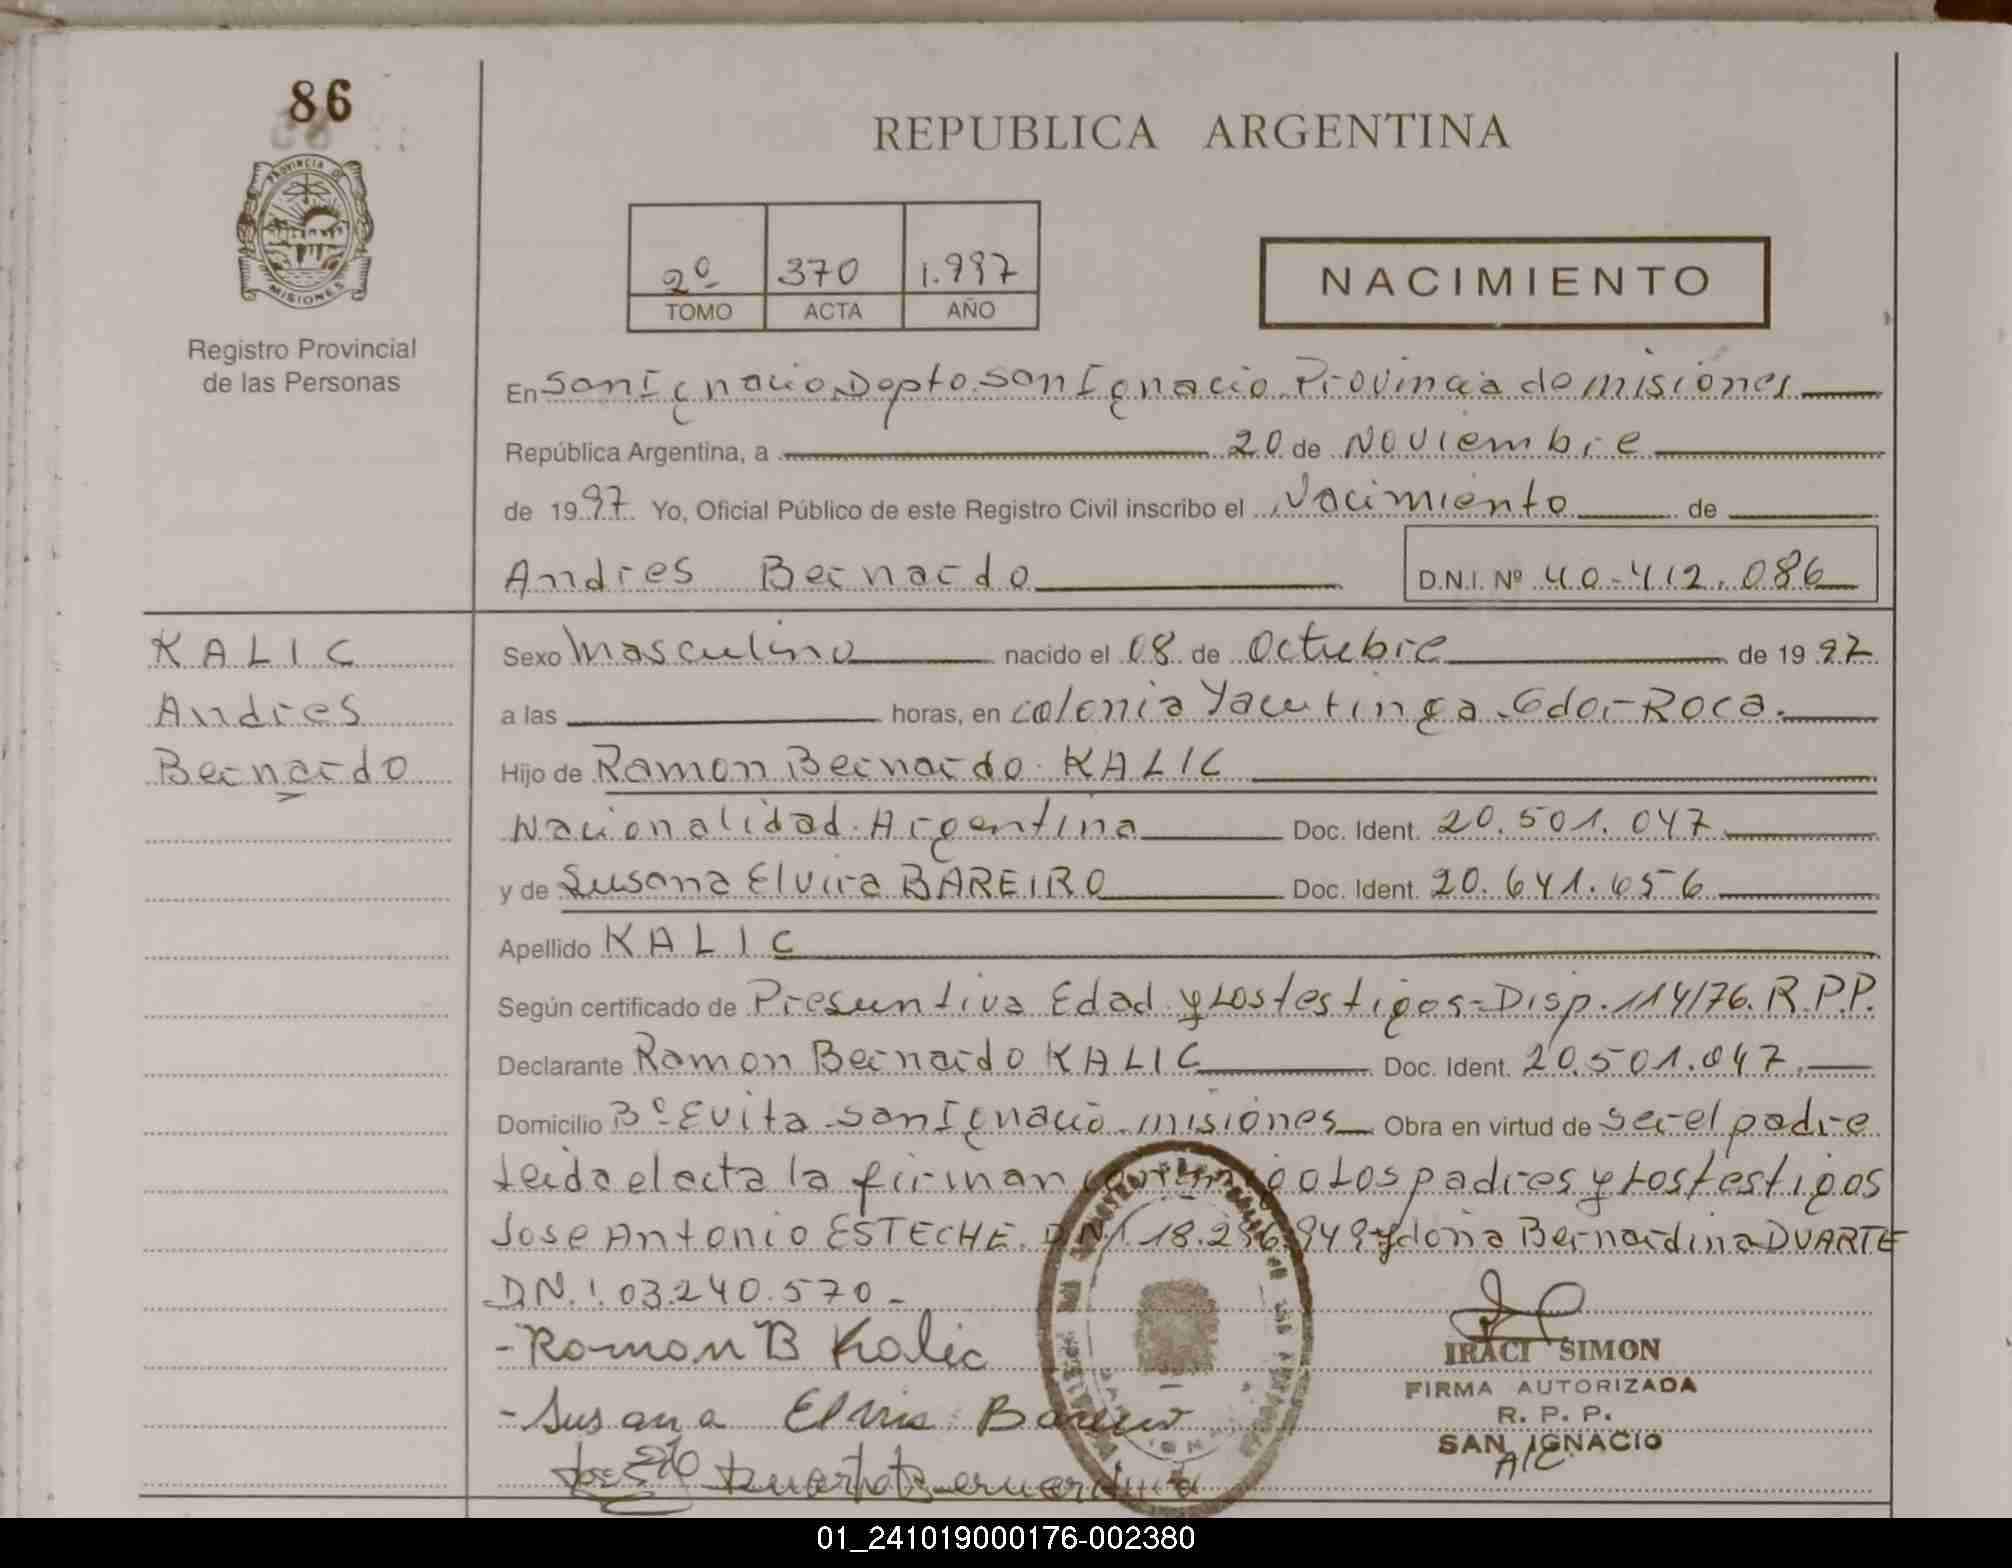 86
REPUBLICA ARGENTINA
PROVINCIA DE
MISIONES
Registro Provincial
de las Personas
2º 370 1.997
TOMO ACTA AÑO
NACIMIENTO
En San Ignacio Depto. San Ignacio Provincia de misiones
República Argentina, a 20 de Noviembre
de 1997 Yo, Oficial Público de este Registro Civil inscribo el Nacimiento de
Andres Bernardo D.N.I. Nº 40-412.086
KALIC
Andres
Bernardo
Sexo Masculino nacido el 08 de Octubre de 1997
a las horas, en colonia Yacutinga. Gdor-Roca.
Hijo de Ramon Bernardo KALIC
Nacionalidad Argentina Doc. Ident. 20.501.047
y de Susana Elvira BAREIRO Doc. Ident. 20.641.656
Apellido KALIC
Según certificado de Presuntiva Edad y Los testigos = Disp. 114/76. R.P.P.
Declarante Ramon Bernardo KALIC Doc. Ident. 20.501.047.
Domicilio Bº Evita San Ignacio. misiones Obra en virtud de ser el padre
Leida el acta la firman conmigo Los padres y Los testigos
Jose Antonio ESTECHE. DNI. 18.236.949 y doña Bernardina DUARTE
DN.I 03.240.570-
- Ramon B Kalic
- Susana Elvira Bareiro
Duarte Bernardina
IRACI SIMON
FIRMA AUTORIZADA
R. P. P.
SAN IGNACIO
A/C.
01_241019000176-002380